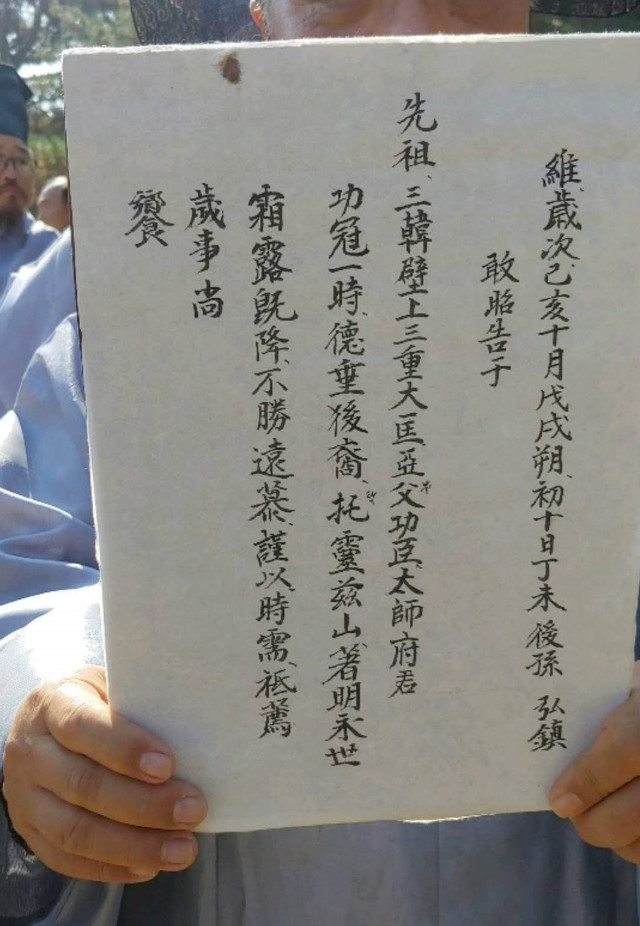 維、歲次己亥十月戊戌朔、初十日丁未後孫 弘鎮
敢昭告于
先祖、三韓壁上三重大匡、亞父功臣、太師府君
功冠一時、德垂後裔、托靈兹山、著明永世
霜露旣降、不勝遠慕、謹以、時需、祗薦
歲事尚
饗